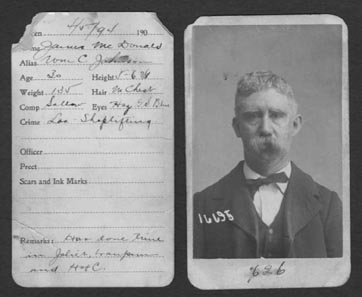 4/5/94 190
James McDonald
Alias Wm C. Johnson
Age 30 Height 5-6 3/4
Weight 135 Hair M Chest
Comp Sallow Eyes
Crime Lar Shoplifting
Officer
Prect
Scars and Ink Marks
Remarks: Has done time
in Joliet,
and H of C.
16698
7626